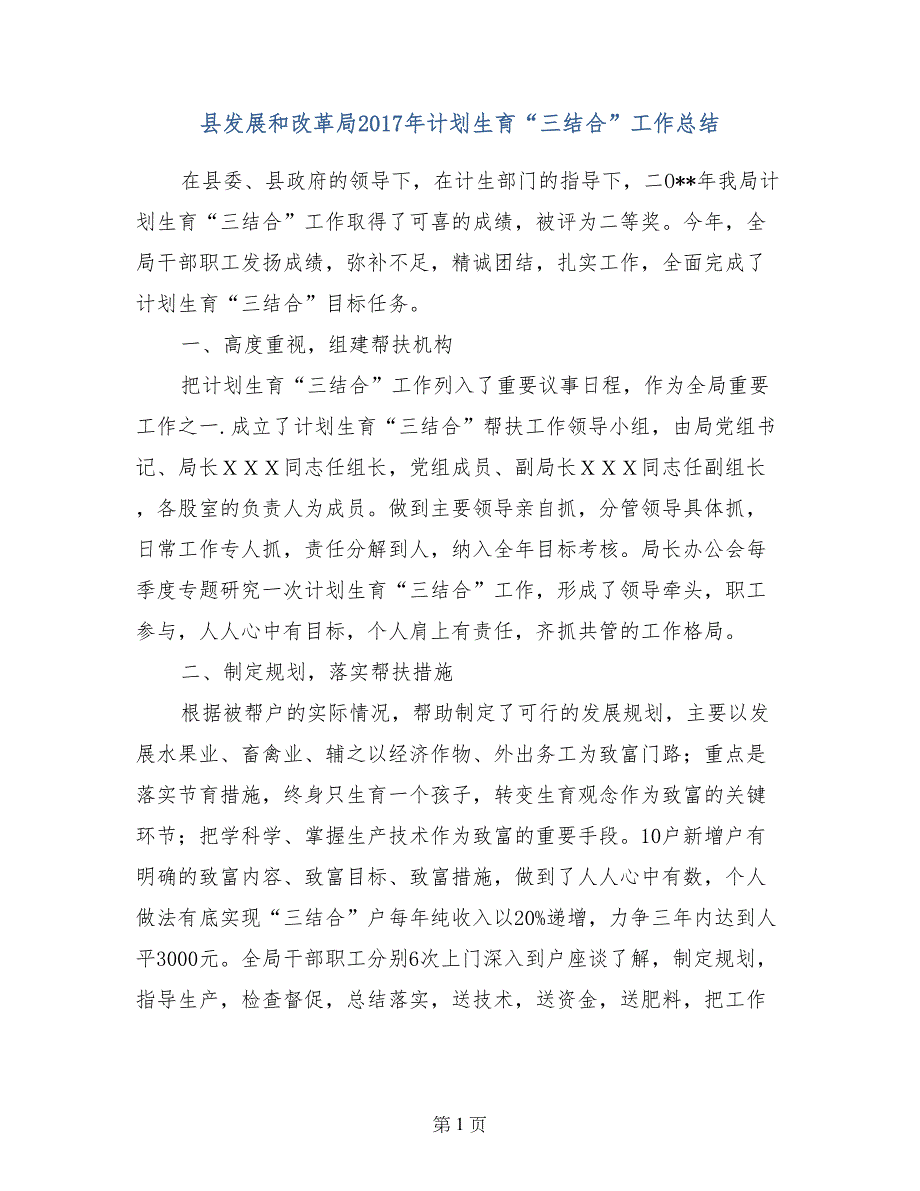 县发展和改革局2017年计划生育“三结合”工作总结
在县委、县政府的领导下，在计生部门的指导下，二O**年我局计
划生育“三结合”工作取得了可喜的成绩，被评为二等奖。今年，全
局干部职工发扬成绩，弥补不足，精诚团结，扎实工作，全面完成了
计划生育“三结合”目标任务。
一、高度重视，组建帮扶机构
把计划生育“三结合”工作列入了重要议事日程，作为全局重要
工作之一.成立了计划生育“三结合”帮扶工作领导小组，由局党组书
记、局长ＸＸＸ同志任组长，党组成员、副局长ＸＸＸ同志任副组长
，各股室的负责人为成员。做到主要领导亲自抓，分管领导具体抓，
日常工作专人抓，责任分解到人，纳入全年目标考核。局长办公会每
季度专题研究一次计划生育“三结合”工作，形成了领导牵头，职工
参与，人人心中有目标，个人肩上有责任，齐抓共管的工作格局。
二、制定规划，落实帮扶措施
根据被帮户的实际情况，帮助制定了可行的发展规划，主要以发
展水果业、畜禽业、辅之以经济作物、外出务工为致富门路；重点是
落实节育措施，终身只生育一个孩子，转变生育观念作为致富的关键
环节；把学科学、掌握生产技术作为致富的重要手段。10户新增户有
明确的致富内容、致富目标、致富措施，做到了人人心中有数，个人
做法有底实现“三结合”户每年纯收入以20%递增，力争三年内达到人
平3000元。全局干部职工分别6次上门深入到户座谈了解，制定规划，
指导生产，检查督促，总结落实，送技术，送资金，送肥料，把工作
第 1 页